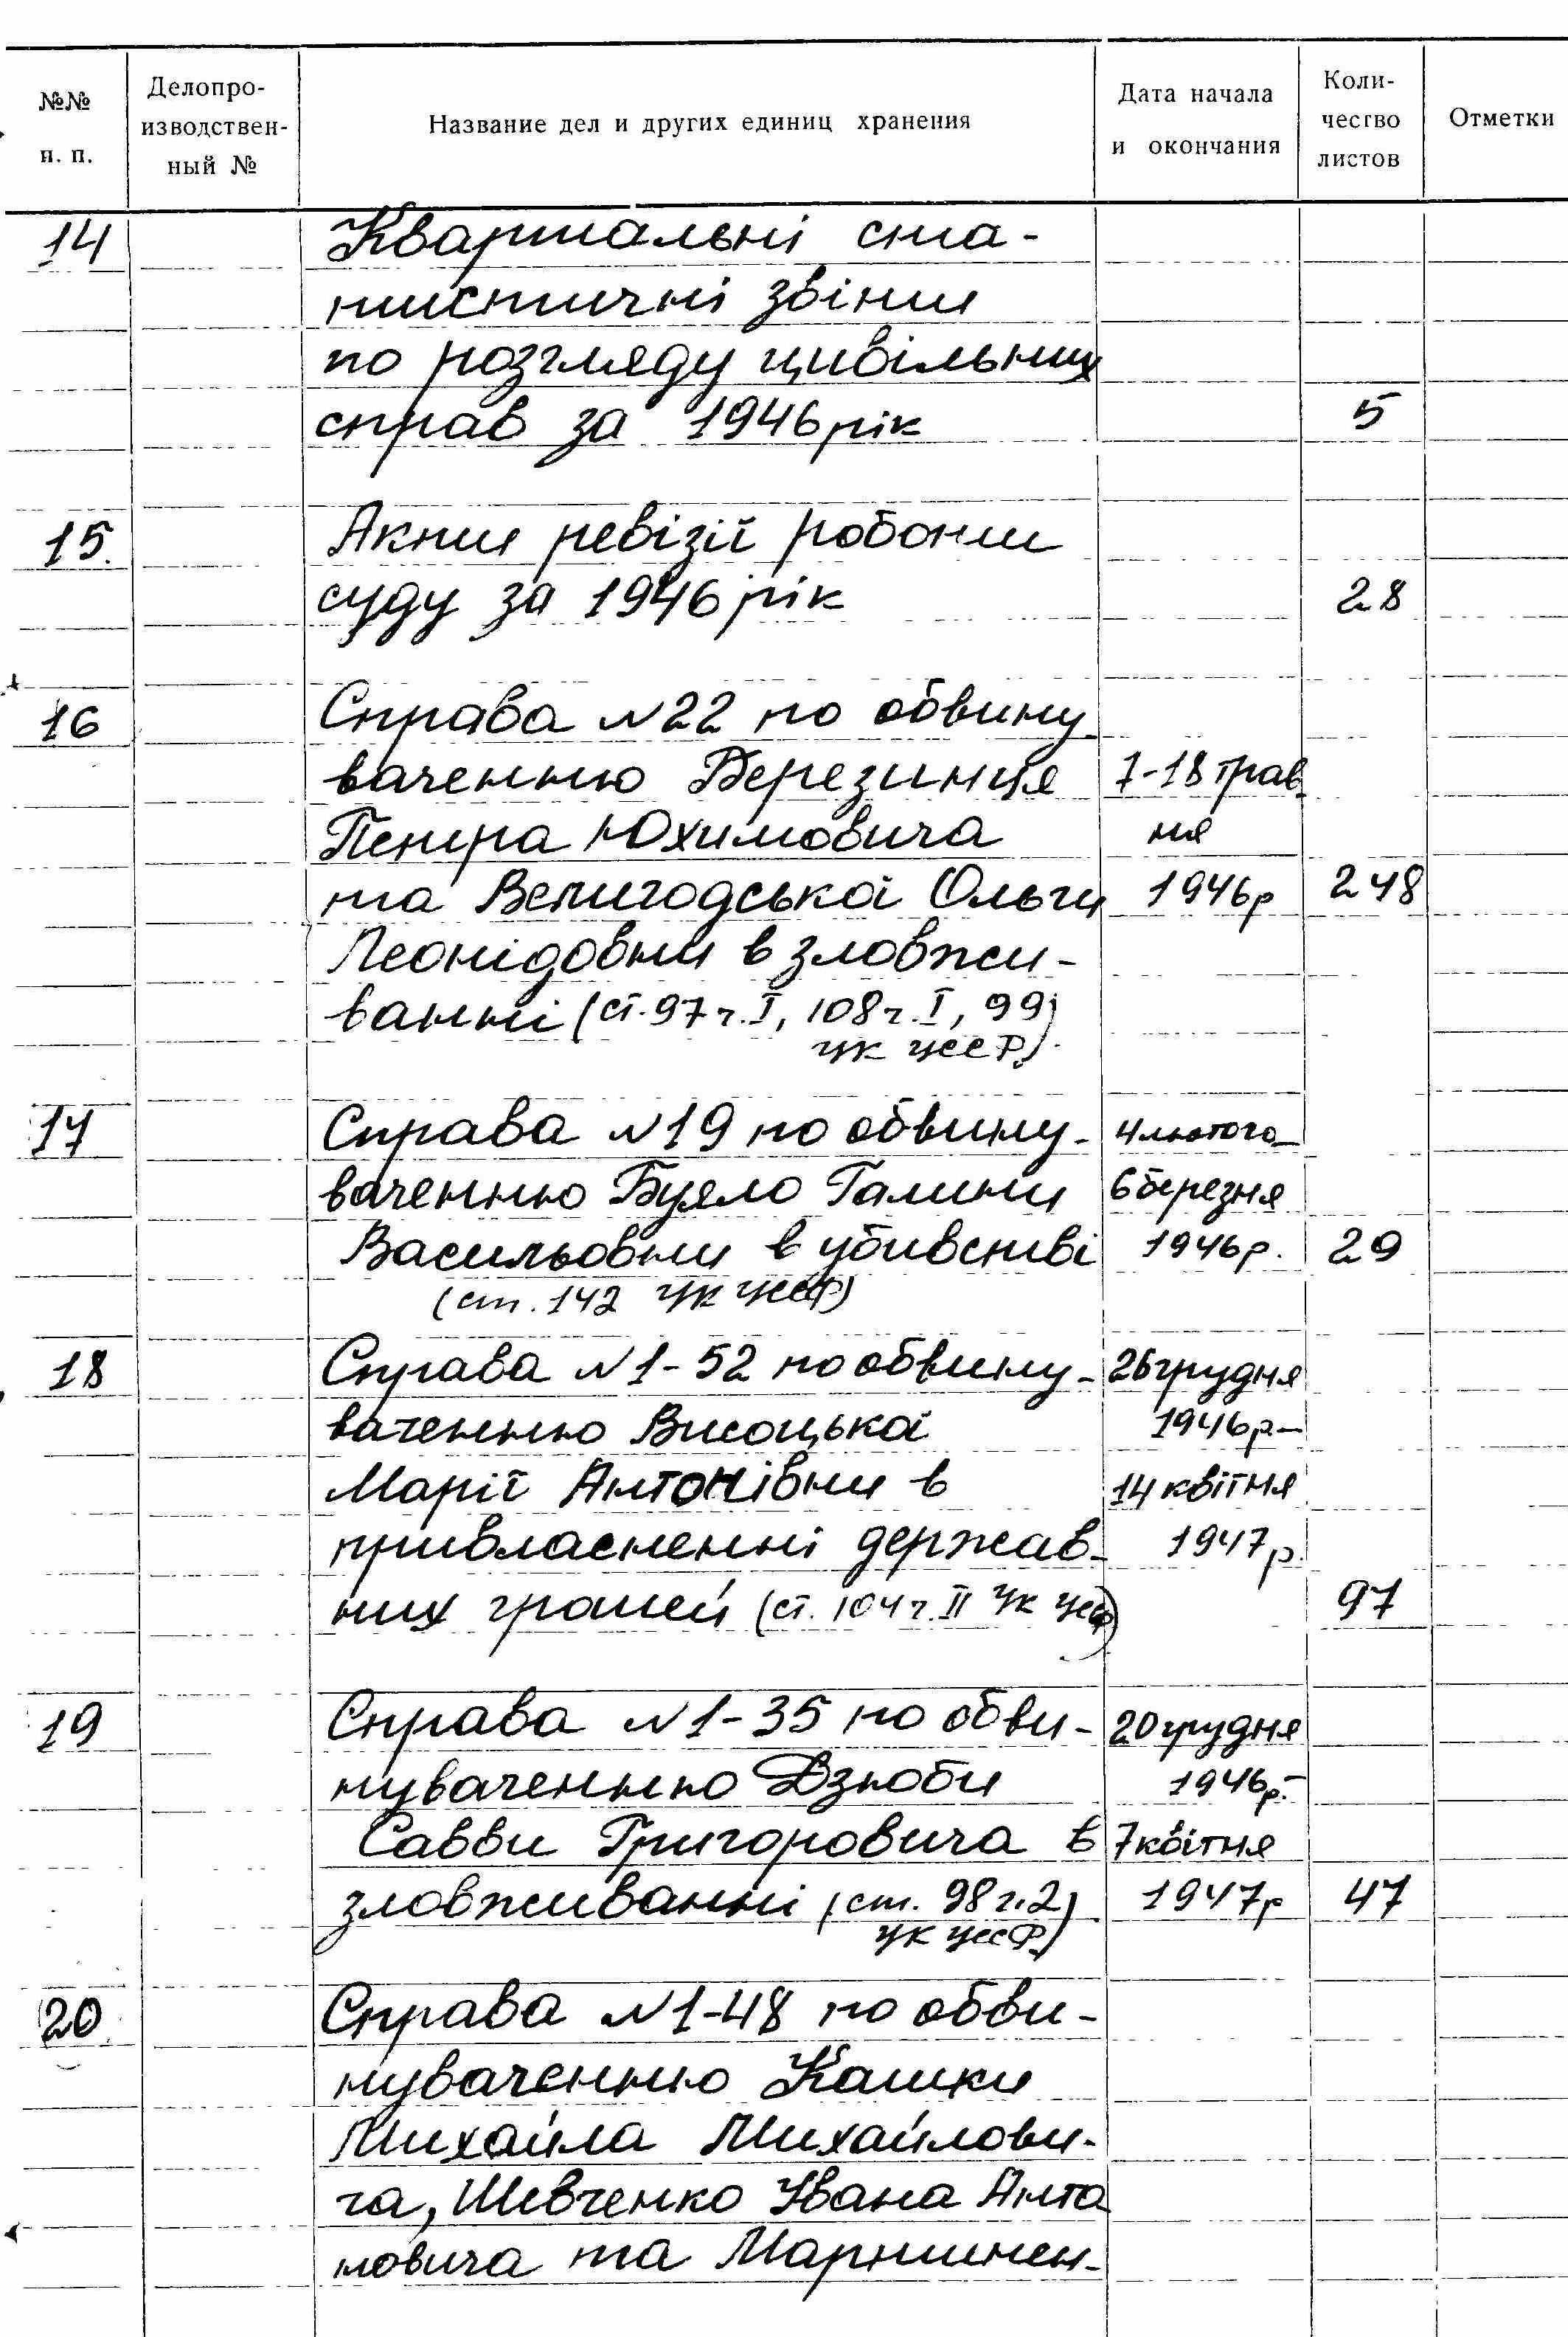 №№ п. п.
Делопро-
изводствен-
ный №
Название дел и других единиц хранения
Дата начала
и окончания
Коли-
чество
листов
Отметки
14 Квартальні ста-
тистичні звіти
по розгляду цивільних
справ за 1946 рік 5
15. Акти ревізії роботи
суду за 1946 рік 28
16 Справа №22 по обвину
ваченню Березинця 7-18 трав-
Петра Юхимовича ня
та Велигодської Ольги 1946р 248
Леонідовни в зловжи-
ванні (ст. 97 ч. I, 108 ч. I, 99)
УК УССР).
17 Справа №19 по обвину- 4 лютого-
ваченню Буяло Галини 6 березня
Васильовни в убивстві 1946р. 29
(ст. 142 УК УССР)
18 Справа №1-52 по обвину- 26 грудня
ваченню Висоцької 1946р.-
Марії Антонівни в 14 квітня
привласненні держав- 1947р.
них грошей (ст. 104 ч. II УК УССР) 97
19 Справа №1-35 по обви- 20 грудня
нуваченню Дзюби 1946р.-
Савви Григоровича в 7 квітня
зловживанні (ст. 98 ч. 2) 1947р 47
УК УССР)
20 Справа №1-48 по обви-
нуваченню Кашки
Михайла Михайлови-
ча, Шевченко Івана Анто
новича та Мартинен-